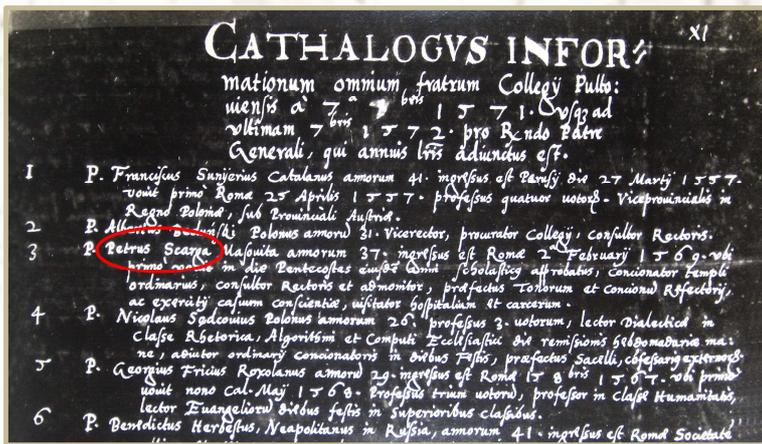 XI
CATHALOGVS INFOR⸗
mationum omnium fratrum Collegij Pulto:
uiensis a' 7.ª bris 1571. Vsq3 ad
vltimam 7 bris 1572. pro Rndo Patre
Generali, qui annuis lris adiunctus est.
1 P. Franciscus Sunijerius Catalanus annorum 41. ingressus est Perusij die 27 Martij 1557.
vouit primo Romæ 25 Aprilis 1557. professus quatuor uotorũ. Viceprouincialis in
Regno Poloniæ, sub Prouinciali Austriæ.
2 P. Polonus annorũ 31. Vicerector, procurator Collegij, Consultor Rectoris.
3 P. Petrus Scarga Masouita annorum 37. ingressus est Romæ 2ª February 1569. vbi
primo in die Pentecostes eiusdẽ Anni scholasticus approbatus, Concionator templi
ordinarius, consultor Rectoris et admonitor, præfectus Tonorum et Concionũ Refectorij,
ac exercitij casuum conscientiæ, uisitator hospitalium et carcerum.
4 P. Nicolaus Sadcouius Polonus annorum 26. professus 3. uotorum, lector Dialecticæ in
Classe Rhetorica, Algorithmi et Computi Ecclesiastici die remissionis hebdomadariæ ma:
ne, adiutor ordinarij concionatoris in diebus Festis, præfectus Sacelli,
5 P. Georgius Fricius Roxolanus annorũ 29. ingressus est Romæ 15 8bris 1567. vbi primo
vouit nono Cal. Maij 1568. Professus trium uotorũ, professor in classe Humanitatis,
lector Euangeliorũ diebus festis in Superioribus classibus.
6 P. Benedictus Herbestus, Neapolitanus in Russia, annorum 41. ingressus est Romæ Societatẽ